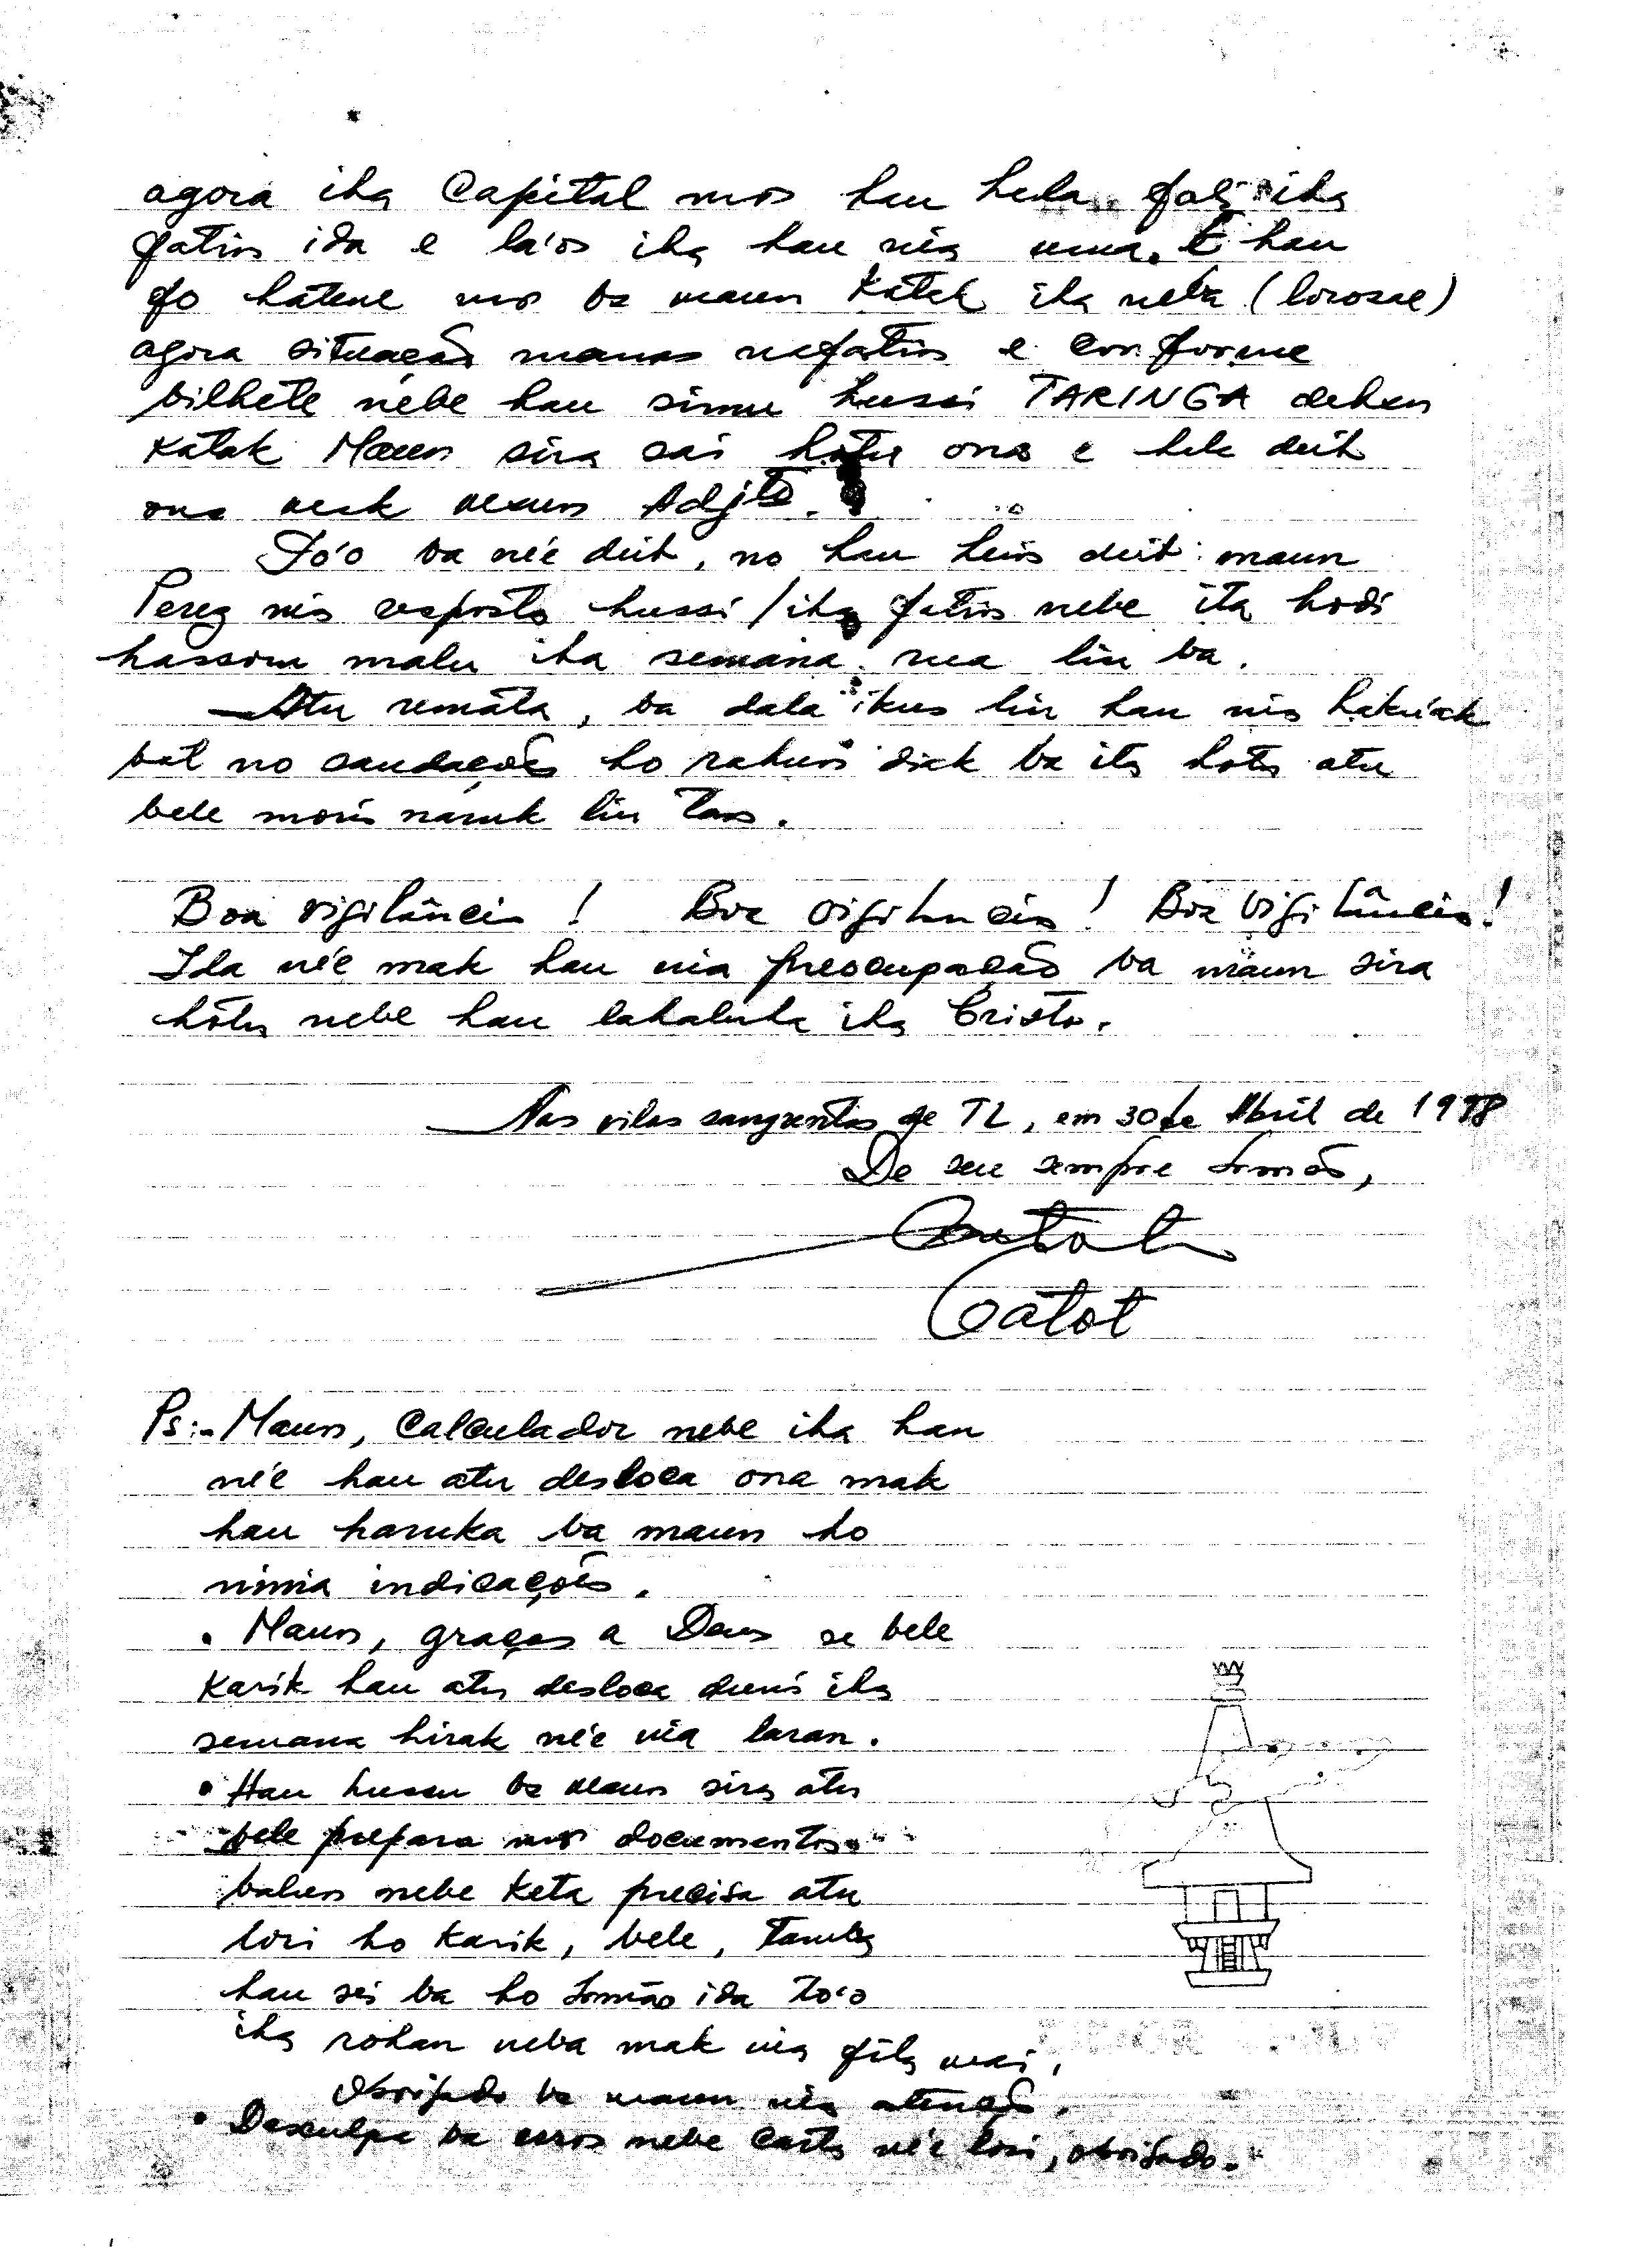 agora iha Capital mos hau hela fali iha
fatin ida e la'os iha hau nia uma. E hau
fo hatene mos ba maun katak iha neba (lorosae)
agora situação manas nafatin e conforme
bilhete nebe hau simu hussi TARINGA dehan
katak Maun sira sai hotu ona e hela deit
ona mak maun Adjto.
To'o ba ne'e deit, no hau hein deit maun
Perez nia resposta hussi/iha fatin nebe ita hodi
hassoru malu iha semana rua liu ba.
Atu remata, ba dala ikus liu hau nia hakuak
bot no saudações ho rahun diak ba ita hotu atu
bele moris naruk liu tan.
Boa vigilância! Boa vigilancia! Boa vigilância!
Ida ne'e mak hau nia preocupação ba maun sira
hotu nebe hau lahaluha iha Cristo.
Nas vilas sangrentas de TL, em 30 de Abril de 1998
De seu sempre Irmão,
Gatot
Ps:- Maun, Calculador nebe iha hau
ne'e hau atu desloca ona mak
hau haruka ba maun ho
ninia indicações.
• Maun, graças a Deus se bele
karik hau atu desloca duni iha
semana hirak ne'e nia laran.
• Hau husu ba maun sira atu
bele prepara mos documentos
balun nebe keta precisa atu
lori ho karik, bele, tamba
hau sei ba ho Irmão ida to'o
iha rohan neba mak nia fila mai.
Obrigado ba maun nia atenção.
• Desculpa ba erros nebe carta ne'e lori, obrigado.